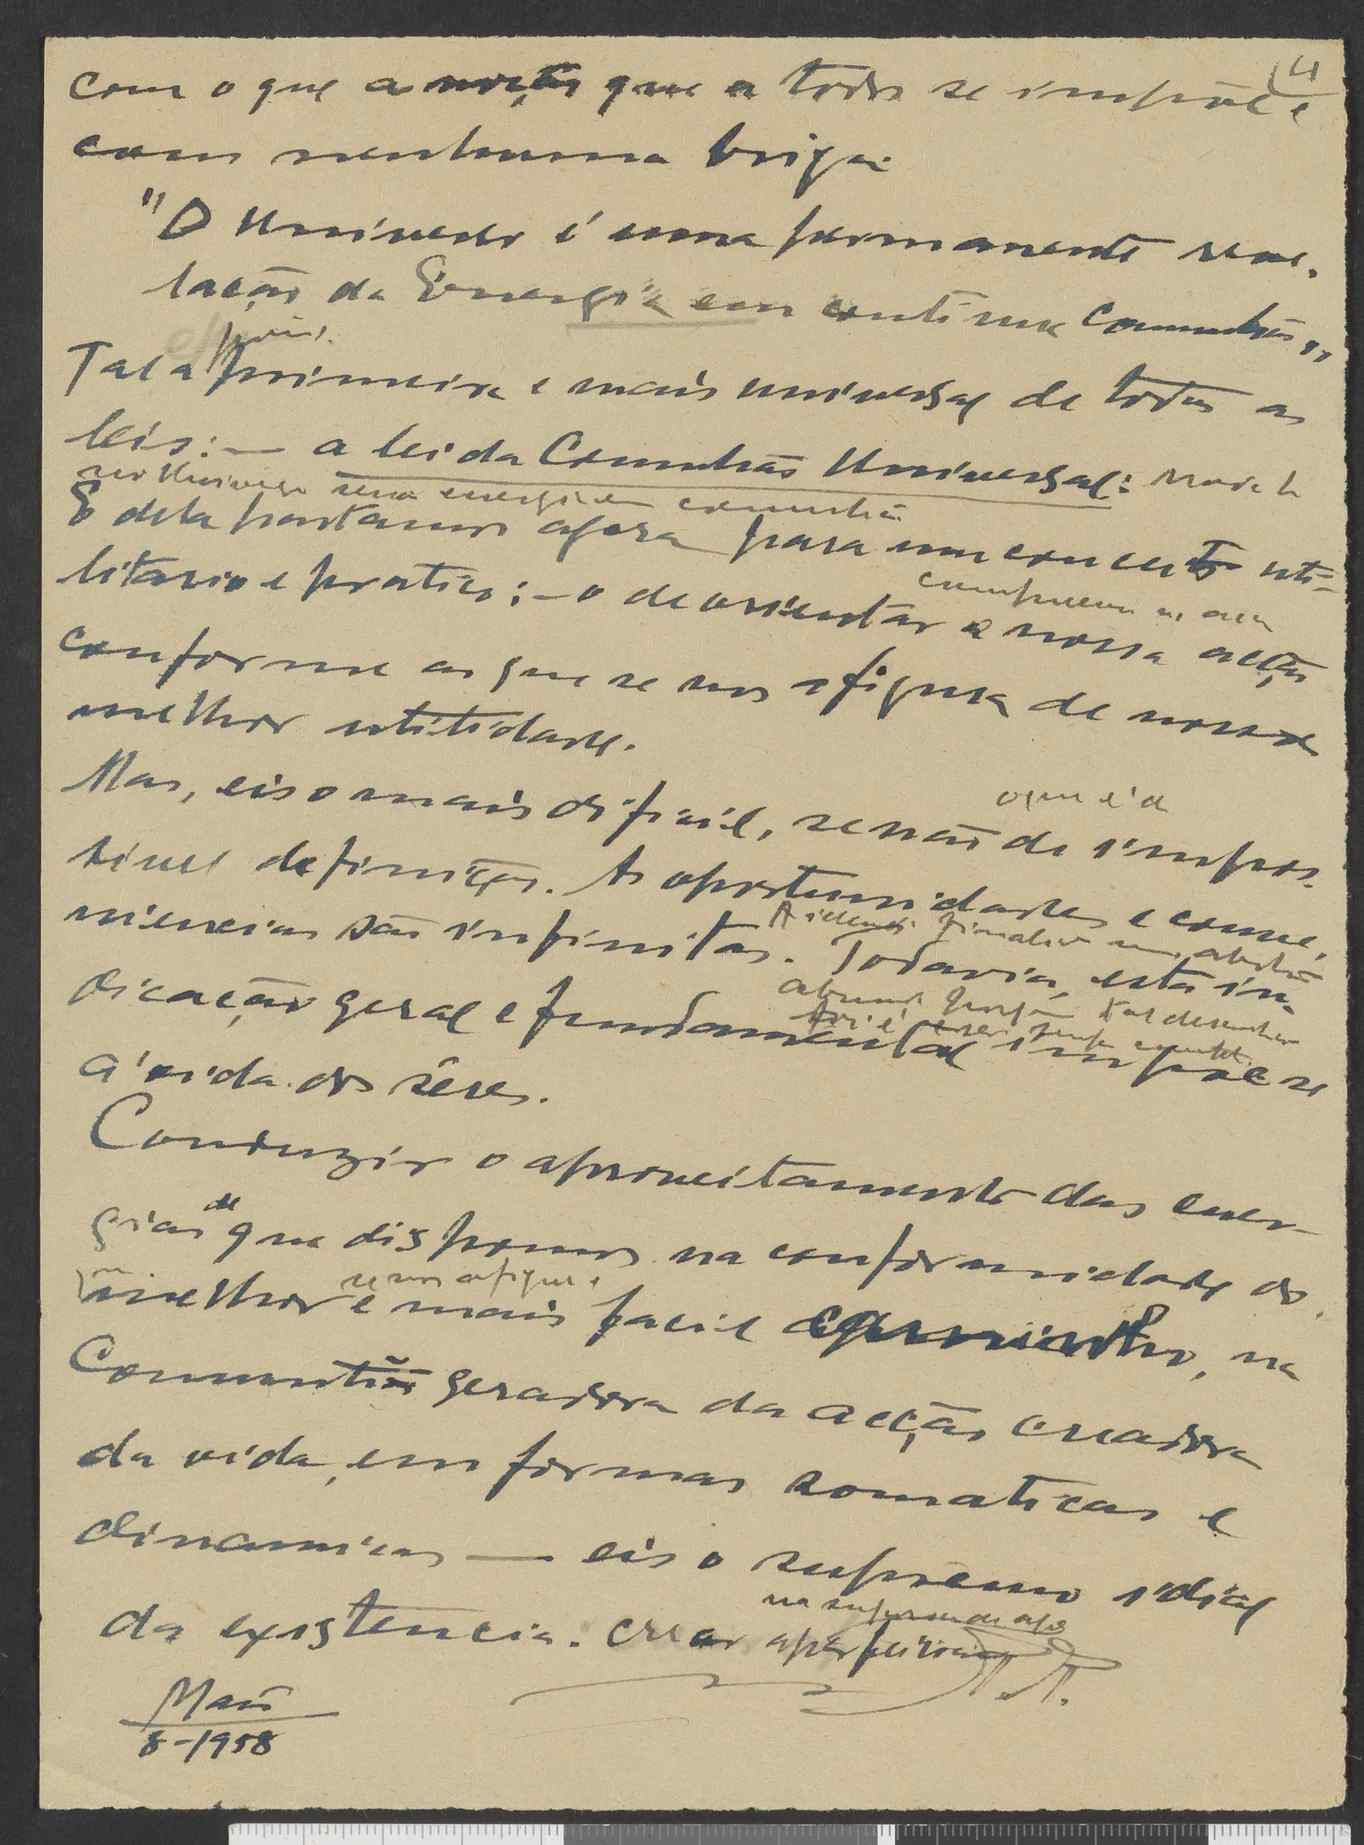 4
com o que a noção que a todos se impõe e
com nenhuma briga:
"O Universo é uma permanente reve-
lação da Energia em continua Comunhão"
pois
Tal a primeira e mais universal de todas as
leis: — a lei da Comunhão Universal:
no Universo energia em comunhão
E dela partamos agora para um conceito uti-
litario e pratico: — o de orientar a nossa acção
conforme ao que se nos afigura de nossa
melhor utilidade.
o que é a
Mas, eis o mais dificil, senão de impos-
sivel definição. As oportunidades e conve-
niencias são infinitas. Todavia, esta in-
dicação geral e fundamental impõe se
á vida dos sêres.
Conduzir o aproveitamento das ener-
de
gias que dispomos na conformidade do
se nos afigura
melhor e mais facil caminho, na
Comunhão geradora da acção creadora
da vida, em formas somaticas e
dinamicas — eis o supremo ideal
da existencia. crear aperfeiçoar
Maio
8-1958